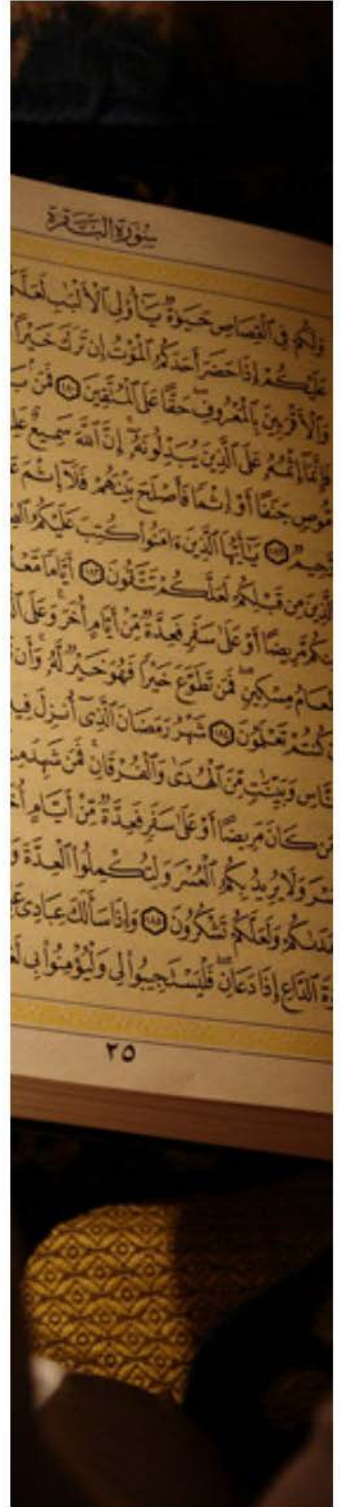 سُورَةُ البَقَرَةِ
وَلَكُمْ فِي ٱلْقِصَاصِ حَيَوٰةٌ يَـٰٓأُو۟لِي ٱلْأَلْبَـٰبِ
عَلَيْكُمْ إِذَا حَضَرَ أَحَدَكُمُ ٱلْمَوْتُ إِن تَرَكَ خَيْرًا
وَٱلْأَقْرَبِينَ بِٱلْمَعْرُوفِ ۖ حَقًّا عَلَى ٱلْمُتَّقِينَ ١٨٠ فَمَنۢ
فَإِنَّمَآ إِثْمُهُۥ عَلَى ٱلَّذِينَ يُبَدِّلُونَهُۥٓ ۚ إِنَّ ٱللَّهَ سَمِيعٌ
مُّوصٍ جَنَفًا أَوْ إِثْمًا فَأَصْلَحَ بَيْنَهُمْ فَلَآ إِثْمَ
١٨٢ يَـٰٓأَيُّهَا ٱلَّذِينَ ءَامَنُوا۟ كُتِبَ عَلَيْكُمُ
ٱلَّذِينَ مِن قَبْلِكُمْ لَعَلَّكُمْ تَتَّقُونَ ١٨٣ أَيَّامًا
مَّرِيضًا أَوْ عَلَىٰ سَفَرٍ فَعِدَّةٌ مِّنْ أَيَّامٍ أُخَرَ ۚ وَعَلَى
مِسْكِينٍ ۖ فَمَن تَطَوَّعَ خَيْرًا فَهُوَ خَيْرٌ لَّهُۥ ۚ وَأَن
كُنتُمْ تَعْلَمُونَ ١٨٤ شَهْرُ رَمَضَانَ ٱلَّذِىٓ أُنزِلَ
وَبَيِّنَـٰتٍ مِّنَ ٱلْهُدَىٰ وَٱلْفُرْقَانِ ۚ فَمَن شَهِدَ
كَانَ مَرِيضًا أَوْ عَلَىٰ سَفَرٍ فَعِدَّةٌ مِّنْ أَيَّامٍ
وَلَا يُرِيدُ بِكُمُ ٱلْعُسْرَ وَلِتُكْمِلُوا۟ ٱلْعِدَّةَ
وَلَعَلَّكُمْ تَشْكُرُونَ ١٨٥ وَإِذَا سَأَلَكَ عِبَادِى
ٱلدَّاعِ إِذَا دَعَانِ ۖ فَلْيَسْتَجِيبُوا۟ لِى وَلْيُؤْمِنُوا۟ بِى
٢٥